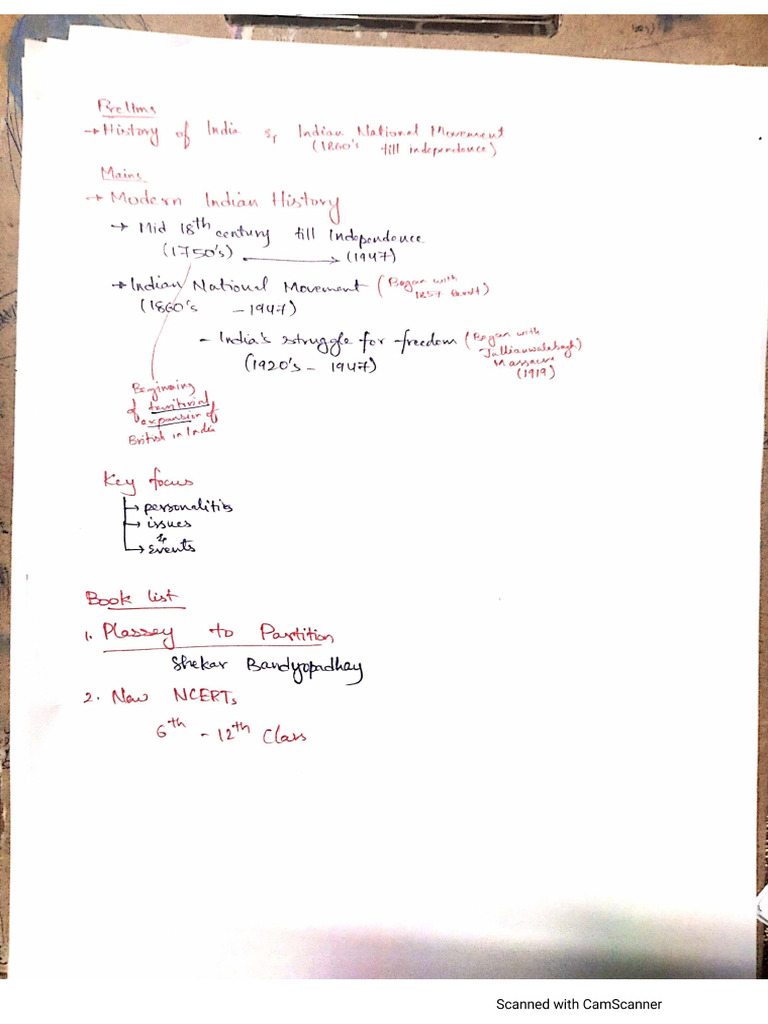 Prelims
→ History of India & Indian National Movement
(1860's till independence)
Mains
→ Modern Indian History
→ Mid 18th century till Independence
(1750's) → (1947)
→ Indian National Movement (Began with
1857 Revolt)
(1860's - 1947)
- India's struggle for freedom (Began with
Jallianwalabagh)
Massacre
(1919)
(1920's - 1947)
Beginning
of territorial
expansion of
British in India
Key focus
→ personalitis
→ issues
&
→ Events
Book list
1. Plassey to Partition
Shekar Bandyopadhay
2. New NCERTs
6th - 12th Class
Scanned with CamScanner